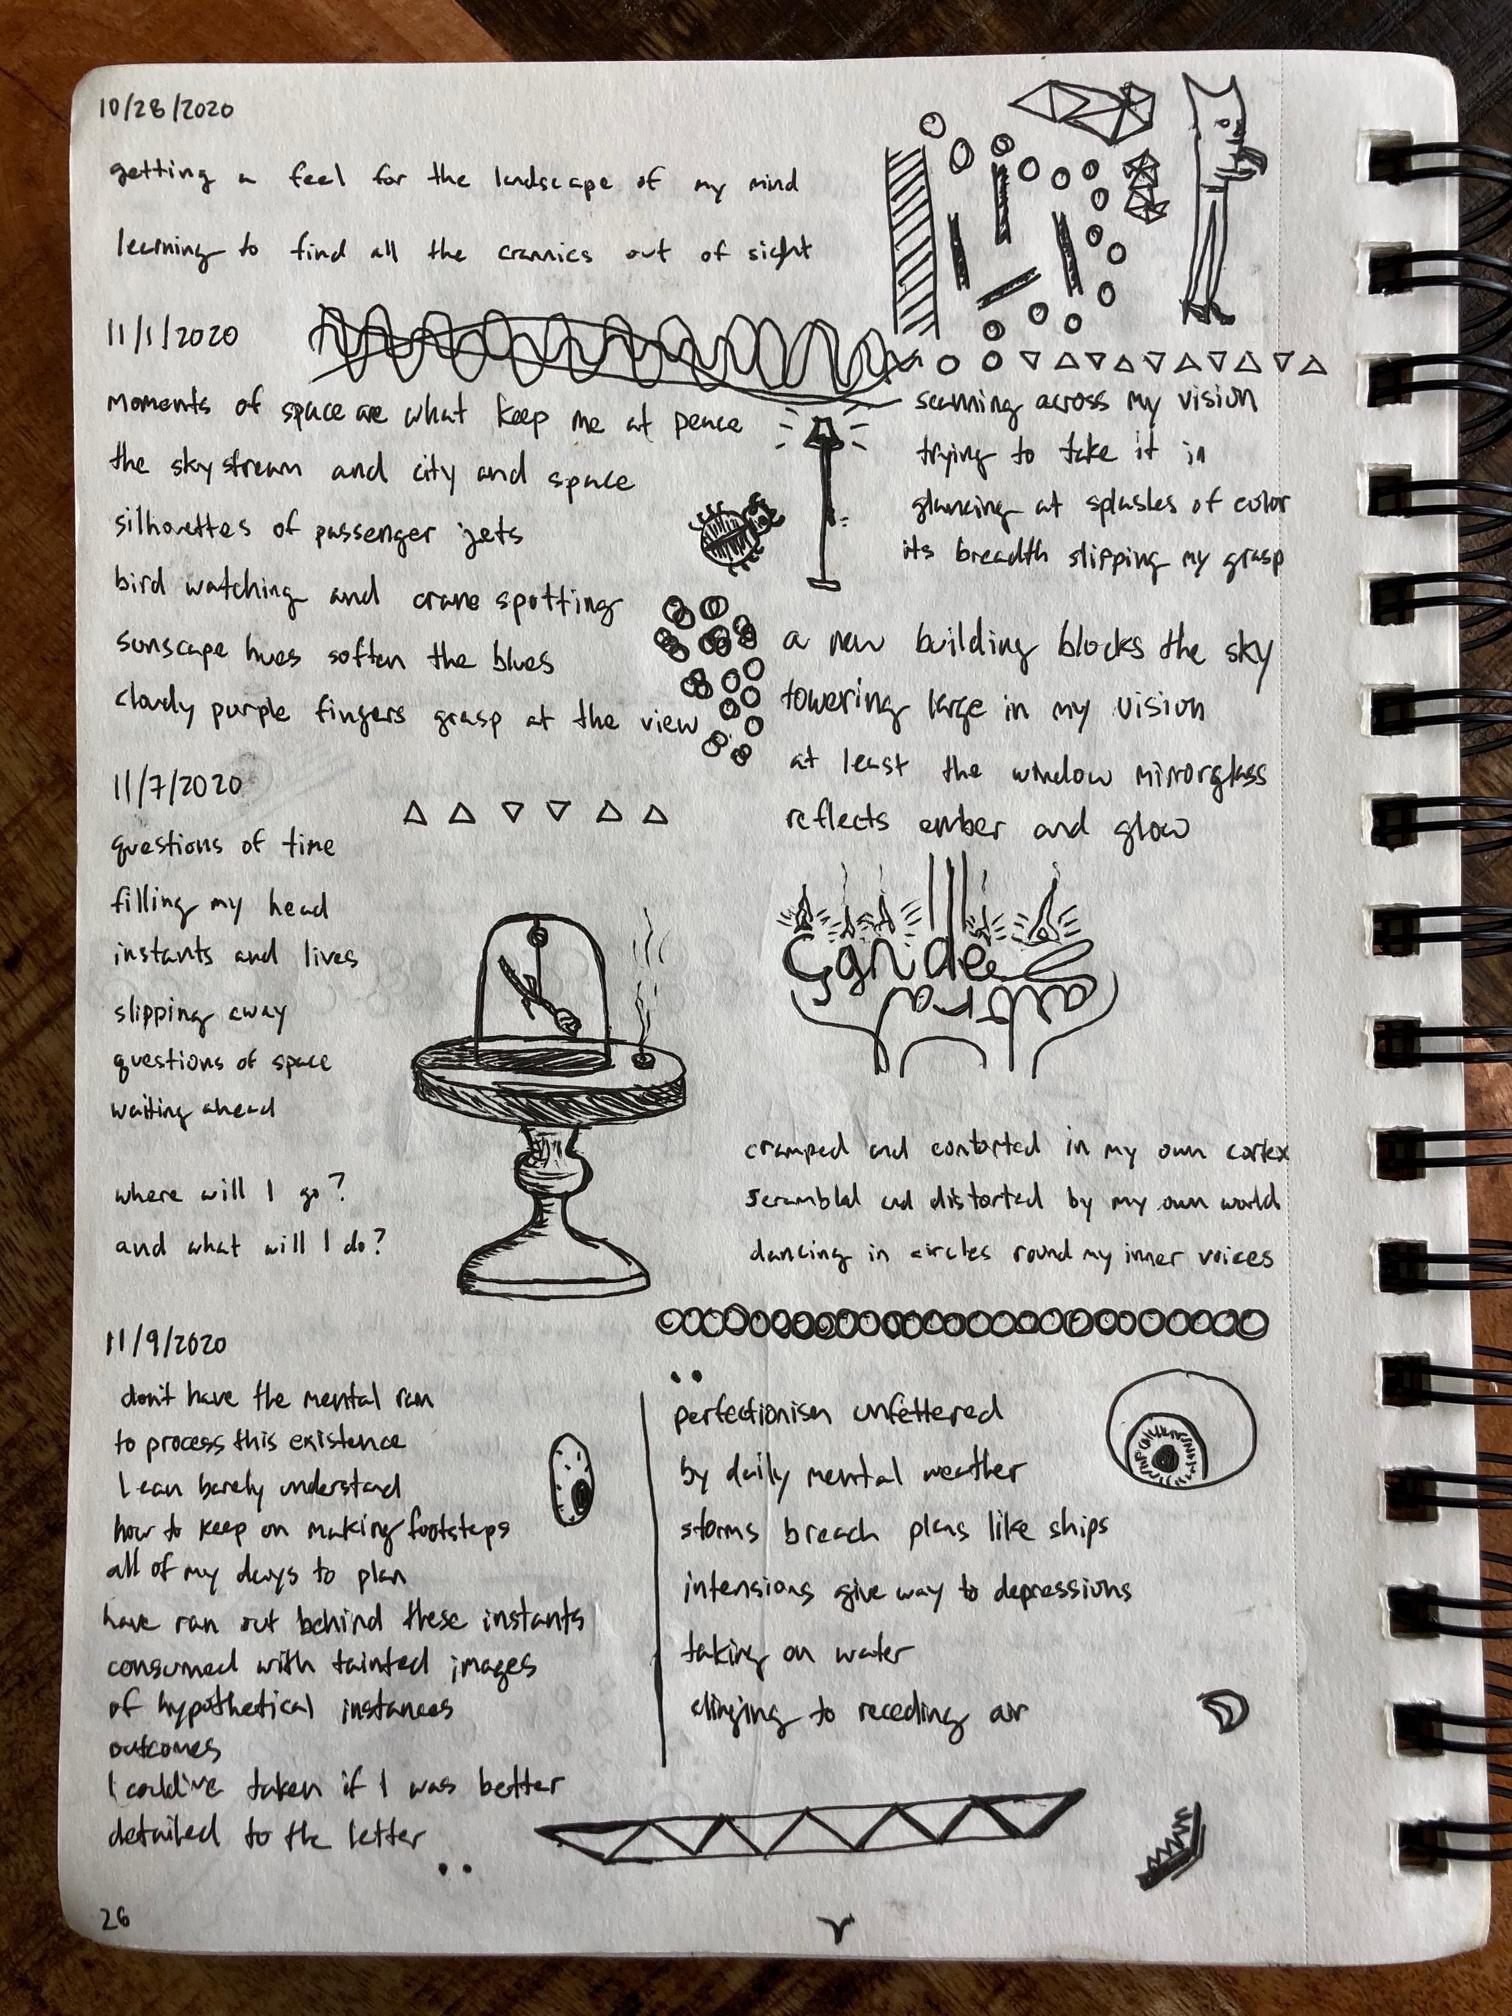 10/28/2020
getting a feel for the landscape of my mind
learning to find all the crannies out of sight
11/1/2020
moments of space are what keep me at peace
the sky stream and city and space
silhouettes of passenger jets
bird watching and crane spotting
sunscape hues soften the blues
cloudy purple fingers grasp at the view
scanning across my vision
trying to take it in
glancing at splashes of color
its breadth slipping my grasp
a new building blocks the sky
towering large in my vision
at least the window mirrorglass
reflects ember and glow
11/7/2020
questions of time
filling my head
instants and lives
slipping away
questions of space
waiting ahead
where will I go?
and what will I do?
candle
altar
cramped and contorted in my own cortex
scrambled and distorted by my own world
dancing in circles round my inner voices
11/9/2020
don't have the mental ram
to process this existence
I can barely understand
how to keep on making footsteps
all of my days to plan
have ran out behind these instants
consumed with tainted images
of hypothetical instances
outcomes
I could've taken if I was better
detailed to the letter
perfectionism unfettered
by daily mental weather
storms breach plans like ships
intensions give way to depressions
taking on water
clinging to receding air
26